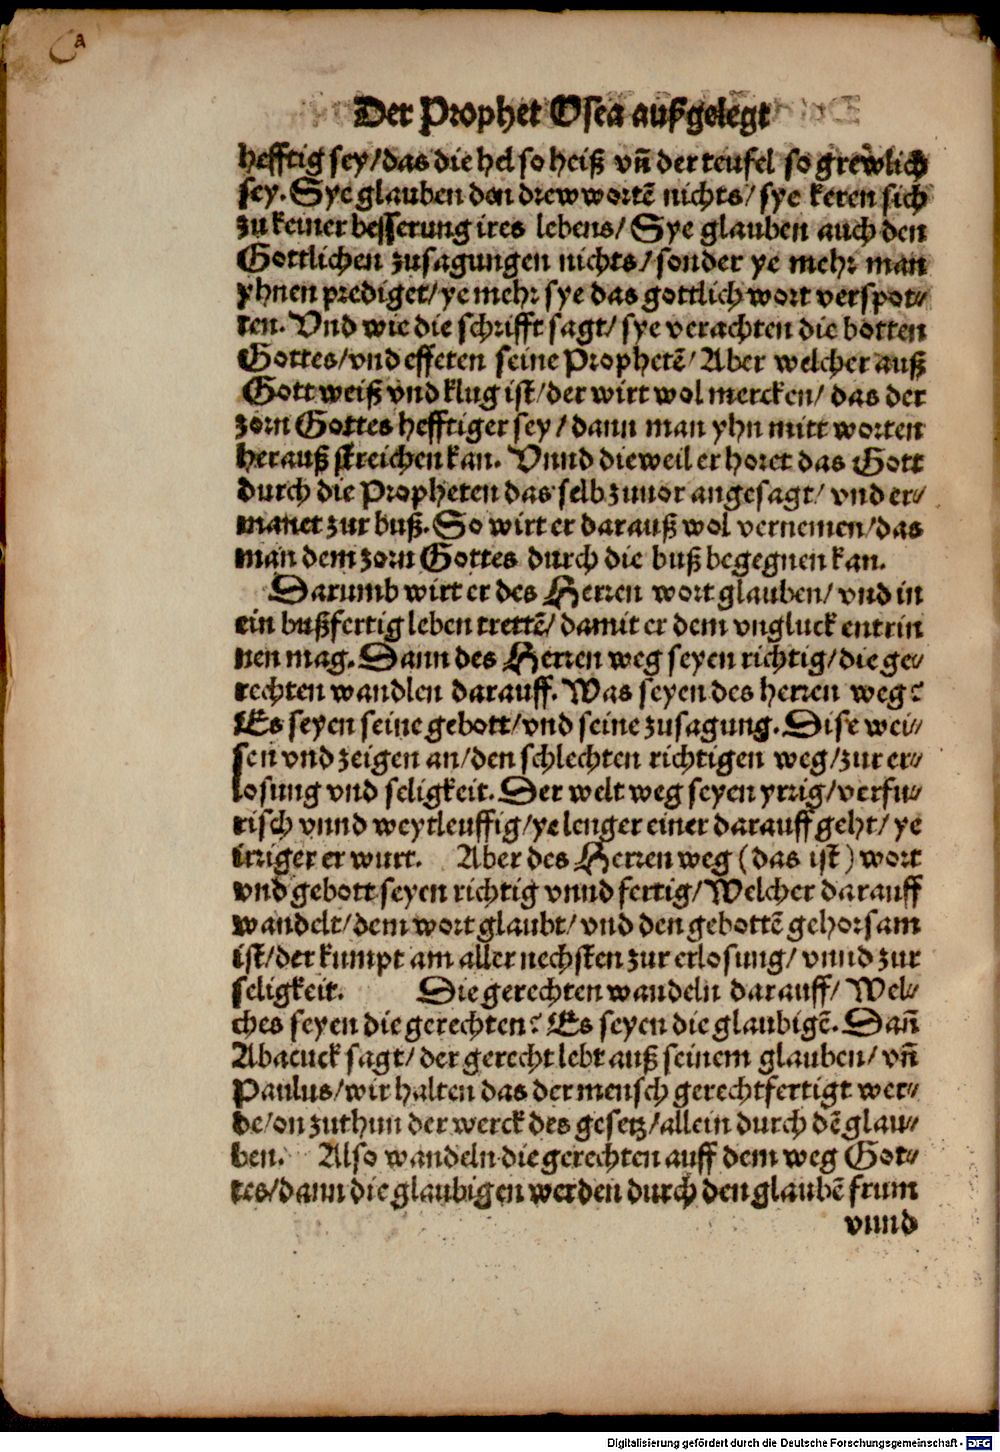 Der Prophet Osea außgelegt
hefftig sey/das die hel so heiß vn̄ der teufel so grewlich
sey. Sye glauben den drew wortē nichts/ sye keren sich
zu keiner besserung ires lebens/ Sye glauben auch den
Gottlichen zusagungen nichts/ sonder ye mehr man
yhnen prediget/ ye mehr sye das gottlich wort verspot⸗
ten. Vnd wie die schrifft sagt/ sye verachten die botten
Gottes/vnd effeten seine Prophetē/ Aber welcher auß
Gott weiß vnd klug ist/der wirt wol mercken/ das der
zorn Gottes hefftiger sey/ dann man yhn mitt worten
herauß streichen kan. Vnnd dieweil er horet das Gott
durch die Propheten das selb zuuor angesagt/ vnd er⸗
manet zur buß. So wirt er darauß wol vernemen/das
man dem zorn Gottes durch die buß begegnen kan.
Darumb wirt er des Herren wort glauben/ vnd in
ein bußfertig leben trettē/ damit er dem vngluck entrin
nen mag. Dann des Herren weg seyen richtig/die ge⸗
rechten wandlen darauff. Was seyen des herren weg?
Es seyen seine gebott/vnd seine zusagung. Dise wei⸗
sen vnd zeigen an/den schlechten richtigen weg/zur er⸗
losung vnd seligkeit. Der welt weg seyen yrrig/verfu⸗
risch vnnd weytleuffig/ye lenger einer darauff geht/ ye
irriger er wurt. Aber des Herren weg (das ist) wort
vnd gebott seyen richtig vnnd fertig/Welcher darauff
wandelt/dem wort glaubt/ vnd den gebottē gehorsam
ist/der kumpt am aller nechsten zur erlosung/ vnnd zur
seligkeit. Die gerechten wandeln darauff/ Wel⸗
ches seyen die gerechten? Es seyen die glaubigē. Dan̄
Abacuck sagt/ der gerecht lebt auß seinem glauben/ vn̄
Paulus/wir halten das der mensch gerechtfertigt wer⸗
de/on zuthun der werck des gesetz/allein durch dē glau⸗
ben. Also wandeln die gerechten auff dem weg Got⸗
tes/dann die glaubigen werden durch den glaubē frum
vnnd
Digitalisierung gefördert durch die Deutsche Forschungsgemeinschaft - DFG